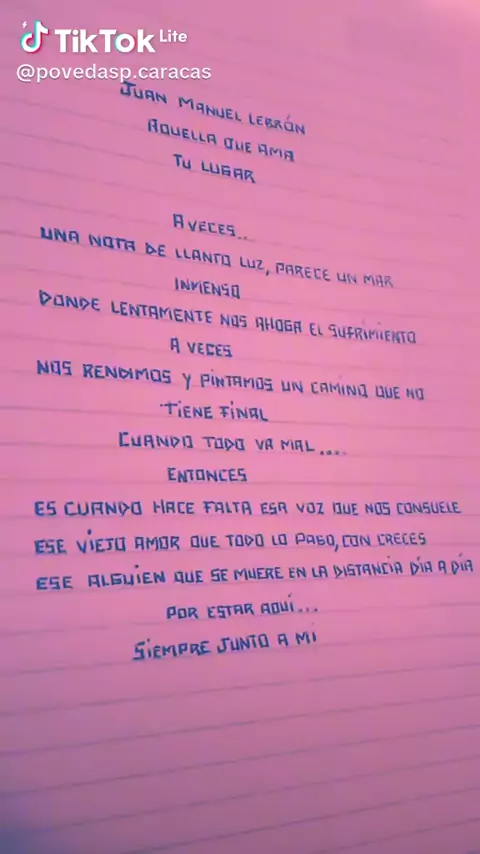 TikTok Lite
@povedasp.caracas
JUAN MANUEL LEBRÓN
AQUELLA QUE AMA
TU LUGAR
A VECES..
UNA NOTA DE LLANTO LUZ, PARECE UN MAR
INMENSO
DONDE LENTAMENTE NOS AHOGA EL SUFRIMIENTO
A VECES
NOS RENDIMOS Y PINTAMOS UN CAMINO QUE NO
TIENE FINAL
CUANDO TODO VA MAL....
ENTONCES
ES CUANDO HACE FALTA ESA VOZ QUE NOS CONSUELE
ESE VIEJO AMOR QUE TODO LO PAGO, CON CRECES
ESE ALGUIEN QUE SE MUERE EN LA DISTANCIA DÍA A DÍA
POR ESTAR AQUÍ...
SIEMPRE JUNTO A MÍ